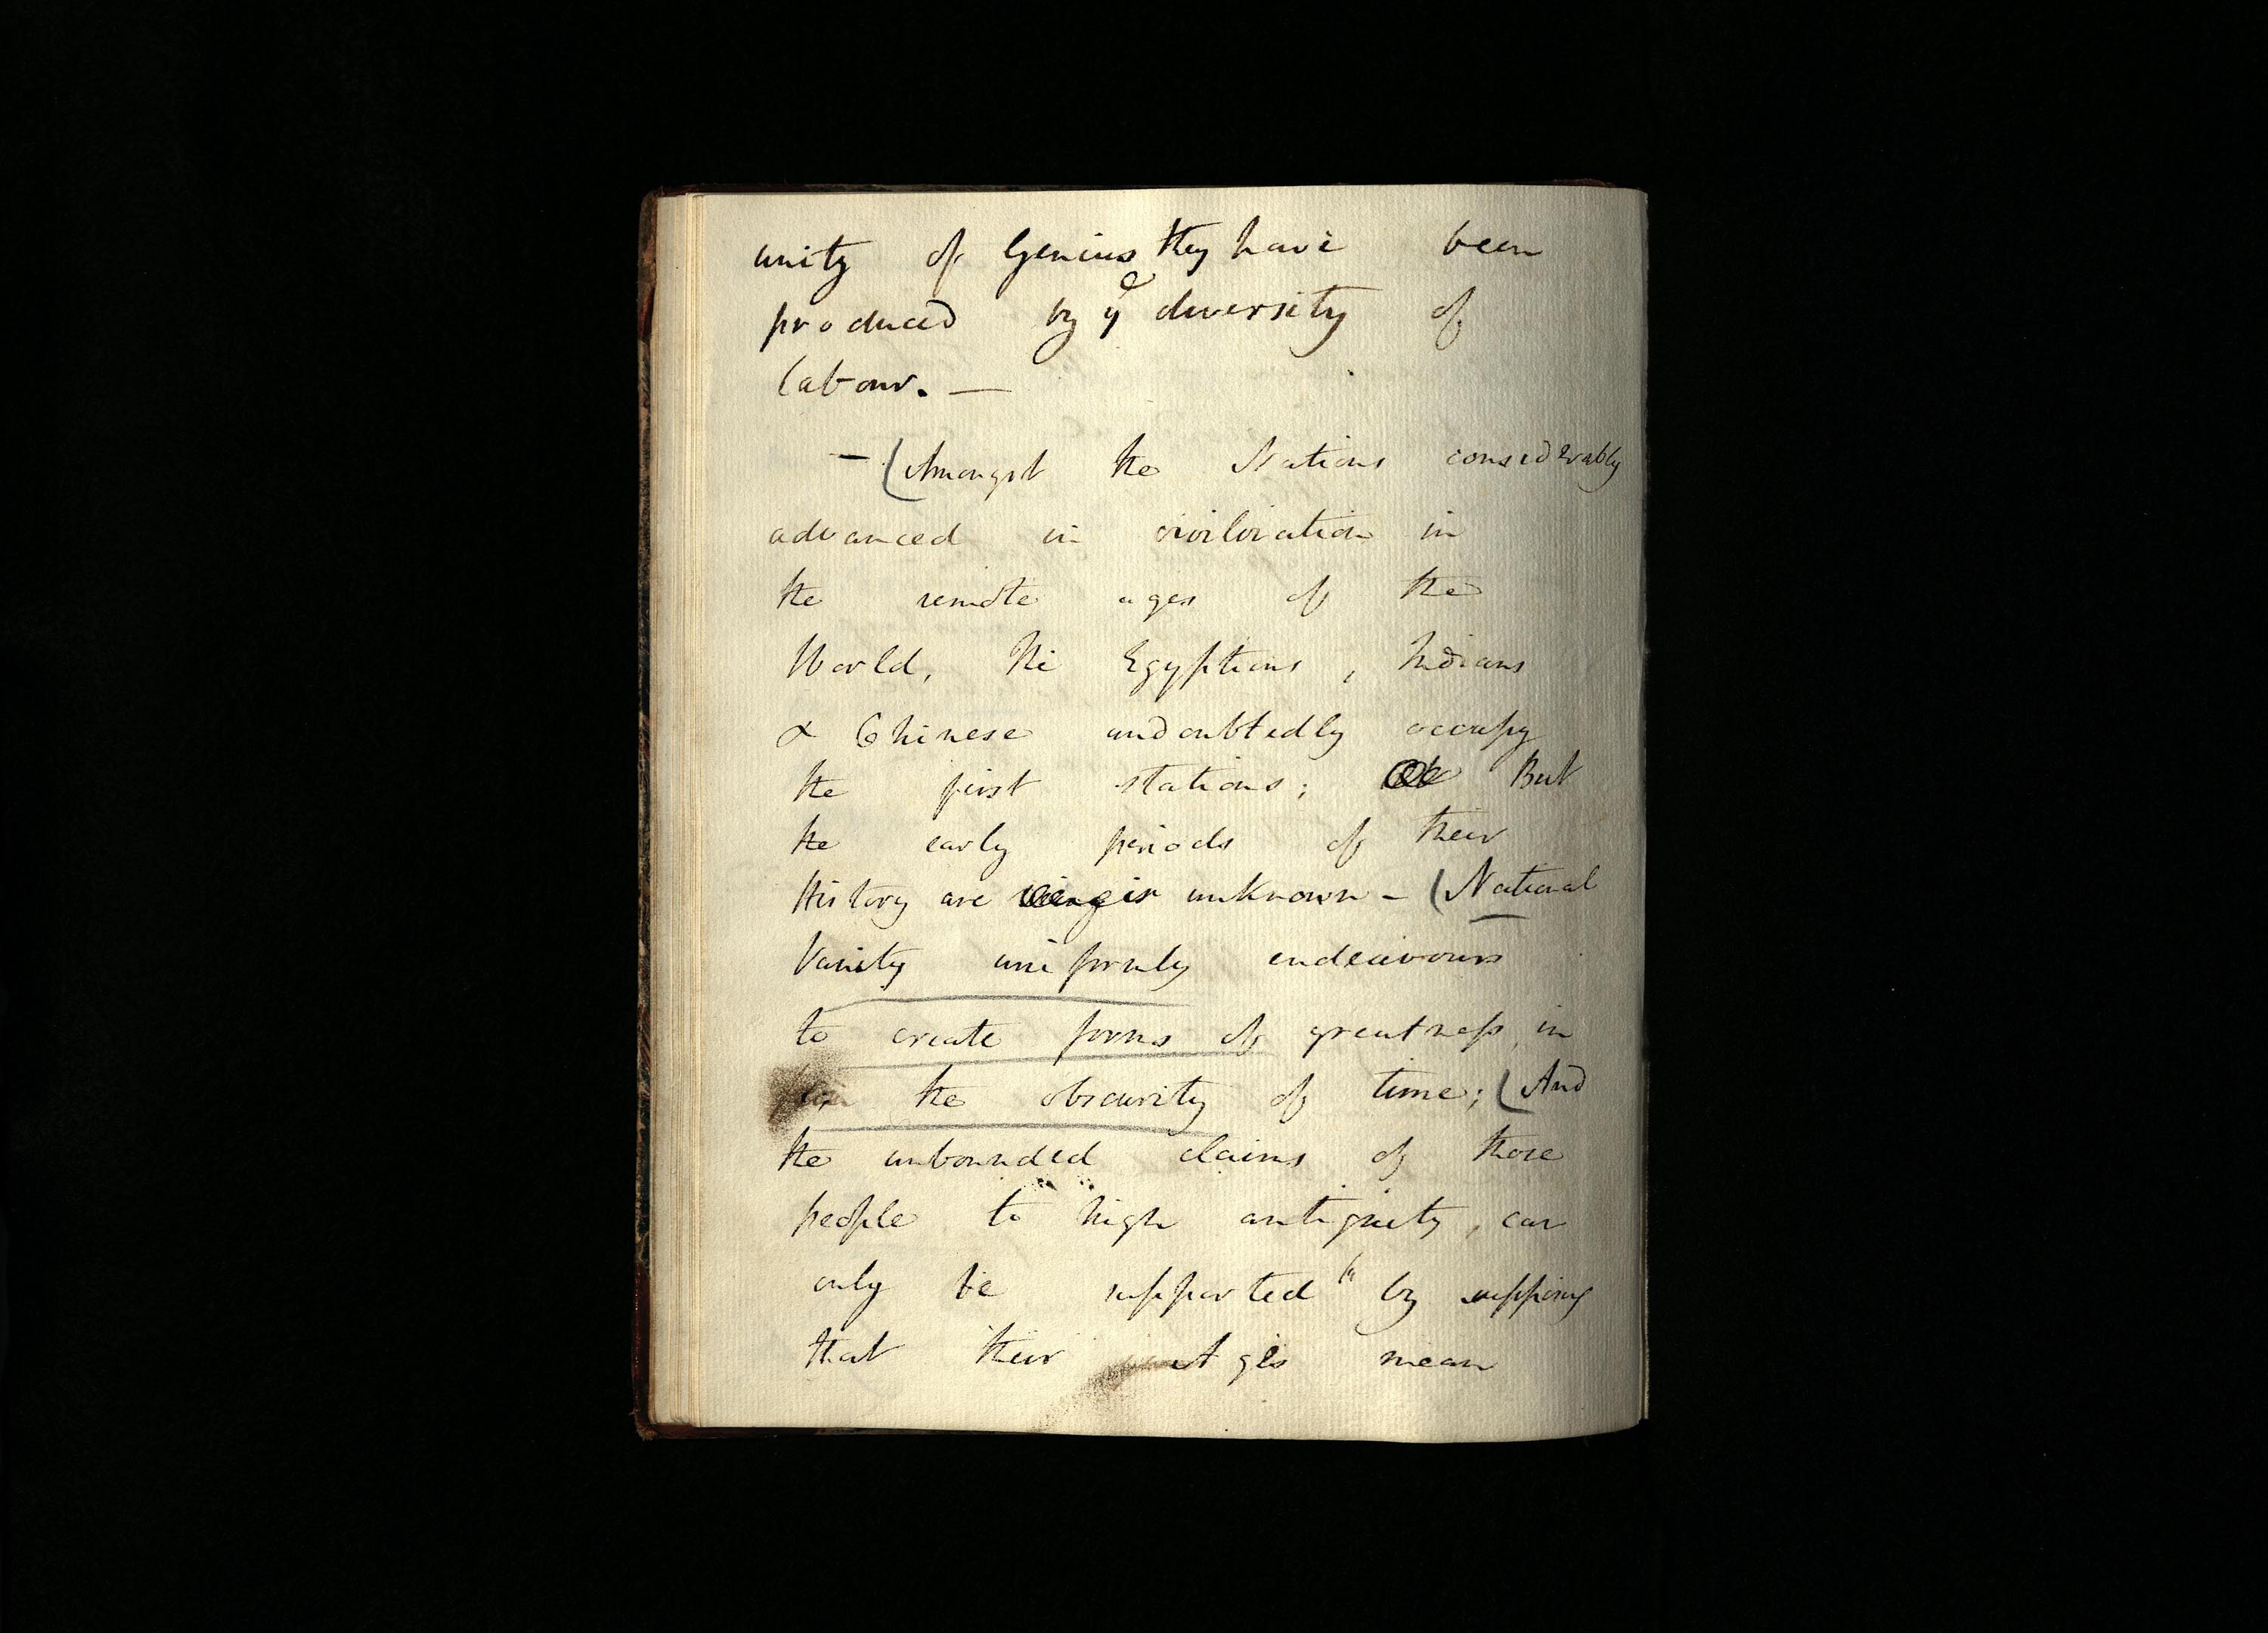 unity of Genius they have been
produced by ye diversity of
labour. —
— (Amongst the Nations considerably
advanced in civilization in
the remote ages of the
World, the Egyptians, Indians
& Chinese undoubtedly occupy
the first stations; But
the early periods of their
History are unknown – (National
Vanity uniformly endeavours
to create forms of greatness in
the obscurity of time; (And
the unbounded claims of those
people to high antiquity, can
only be supported by supposing
that their Ages mean